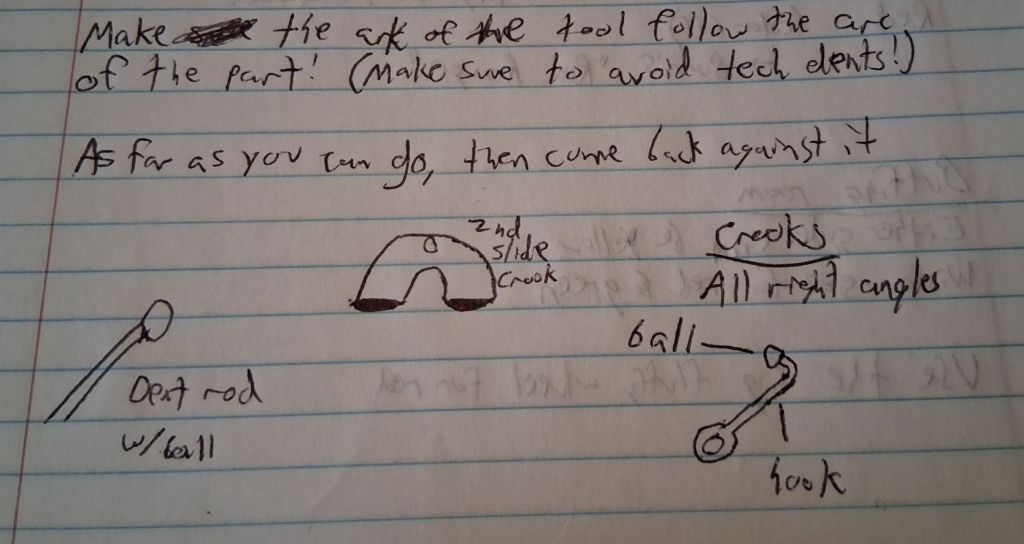 Make the ark of the tool follow the arc
of the part! (Make sure to avoid tech dents!)
As far as you can go, then come back against it
2nd
slide
crook
Crooks
All right angles
ball
Dent rod
w/ball
hook